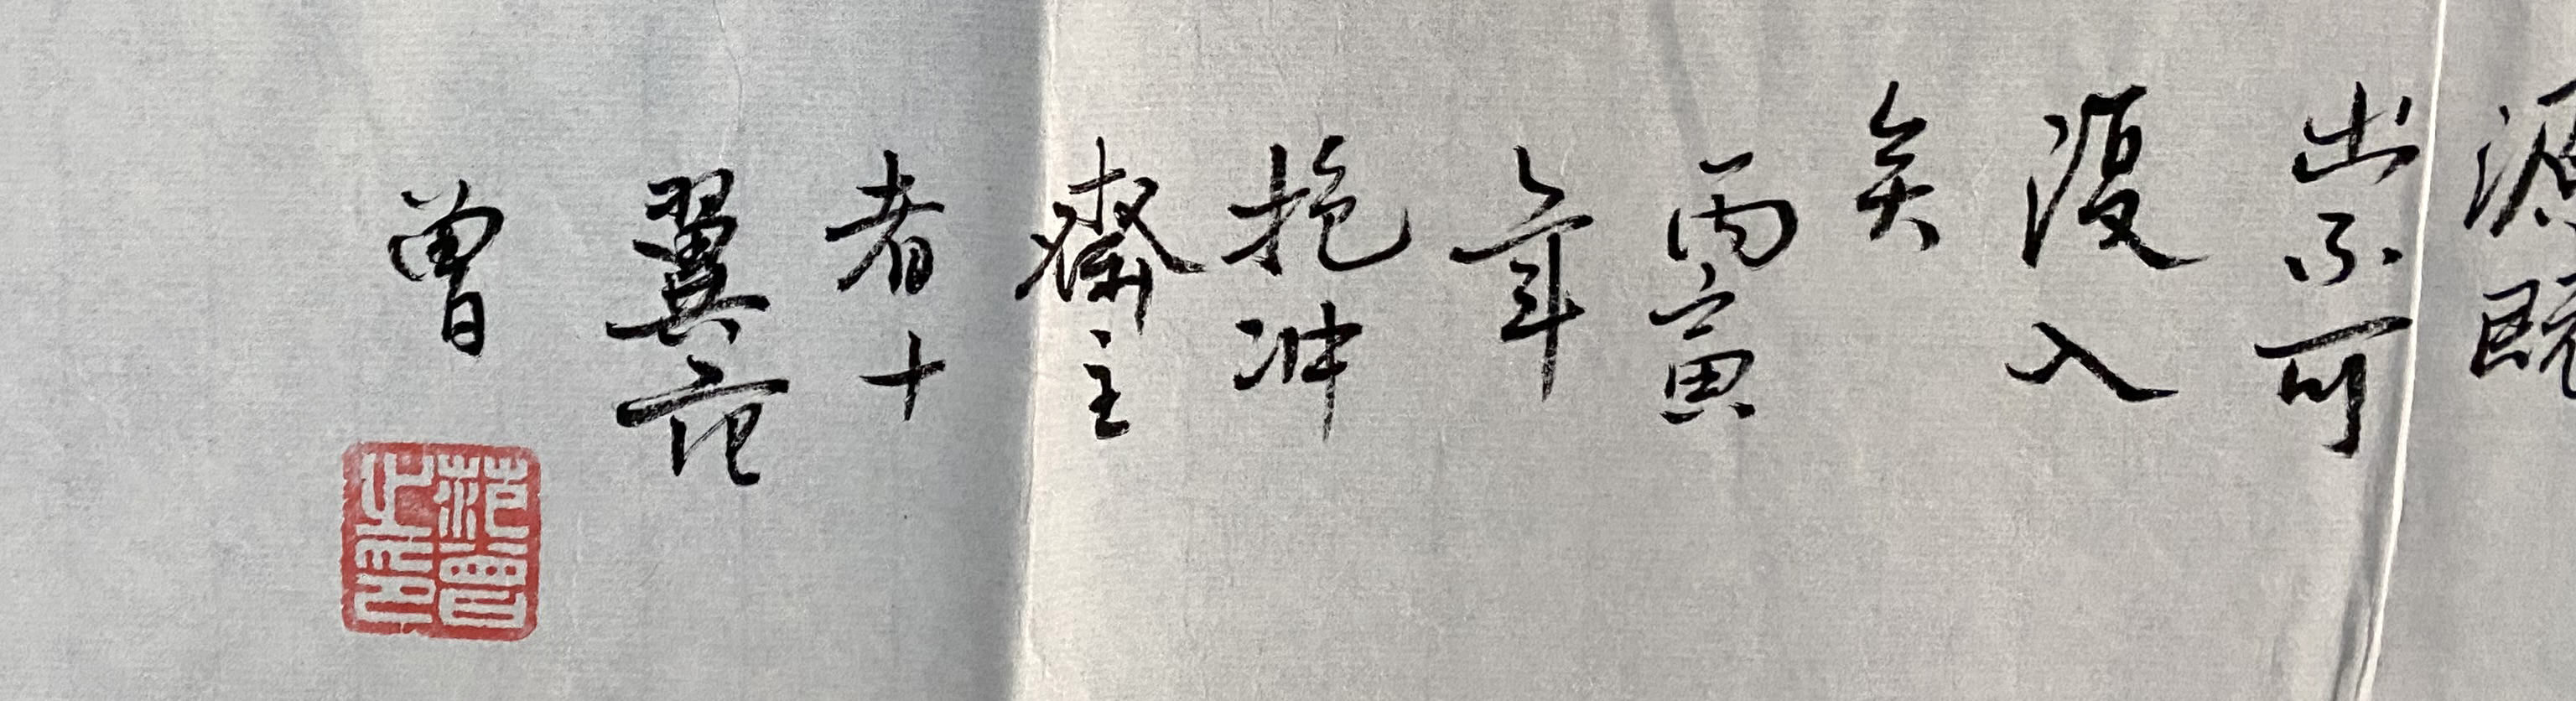 源既
出不可
復入
矣
丙寅
年
抱冲
齋主
者十
翼范
曾
范曾
之印